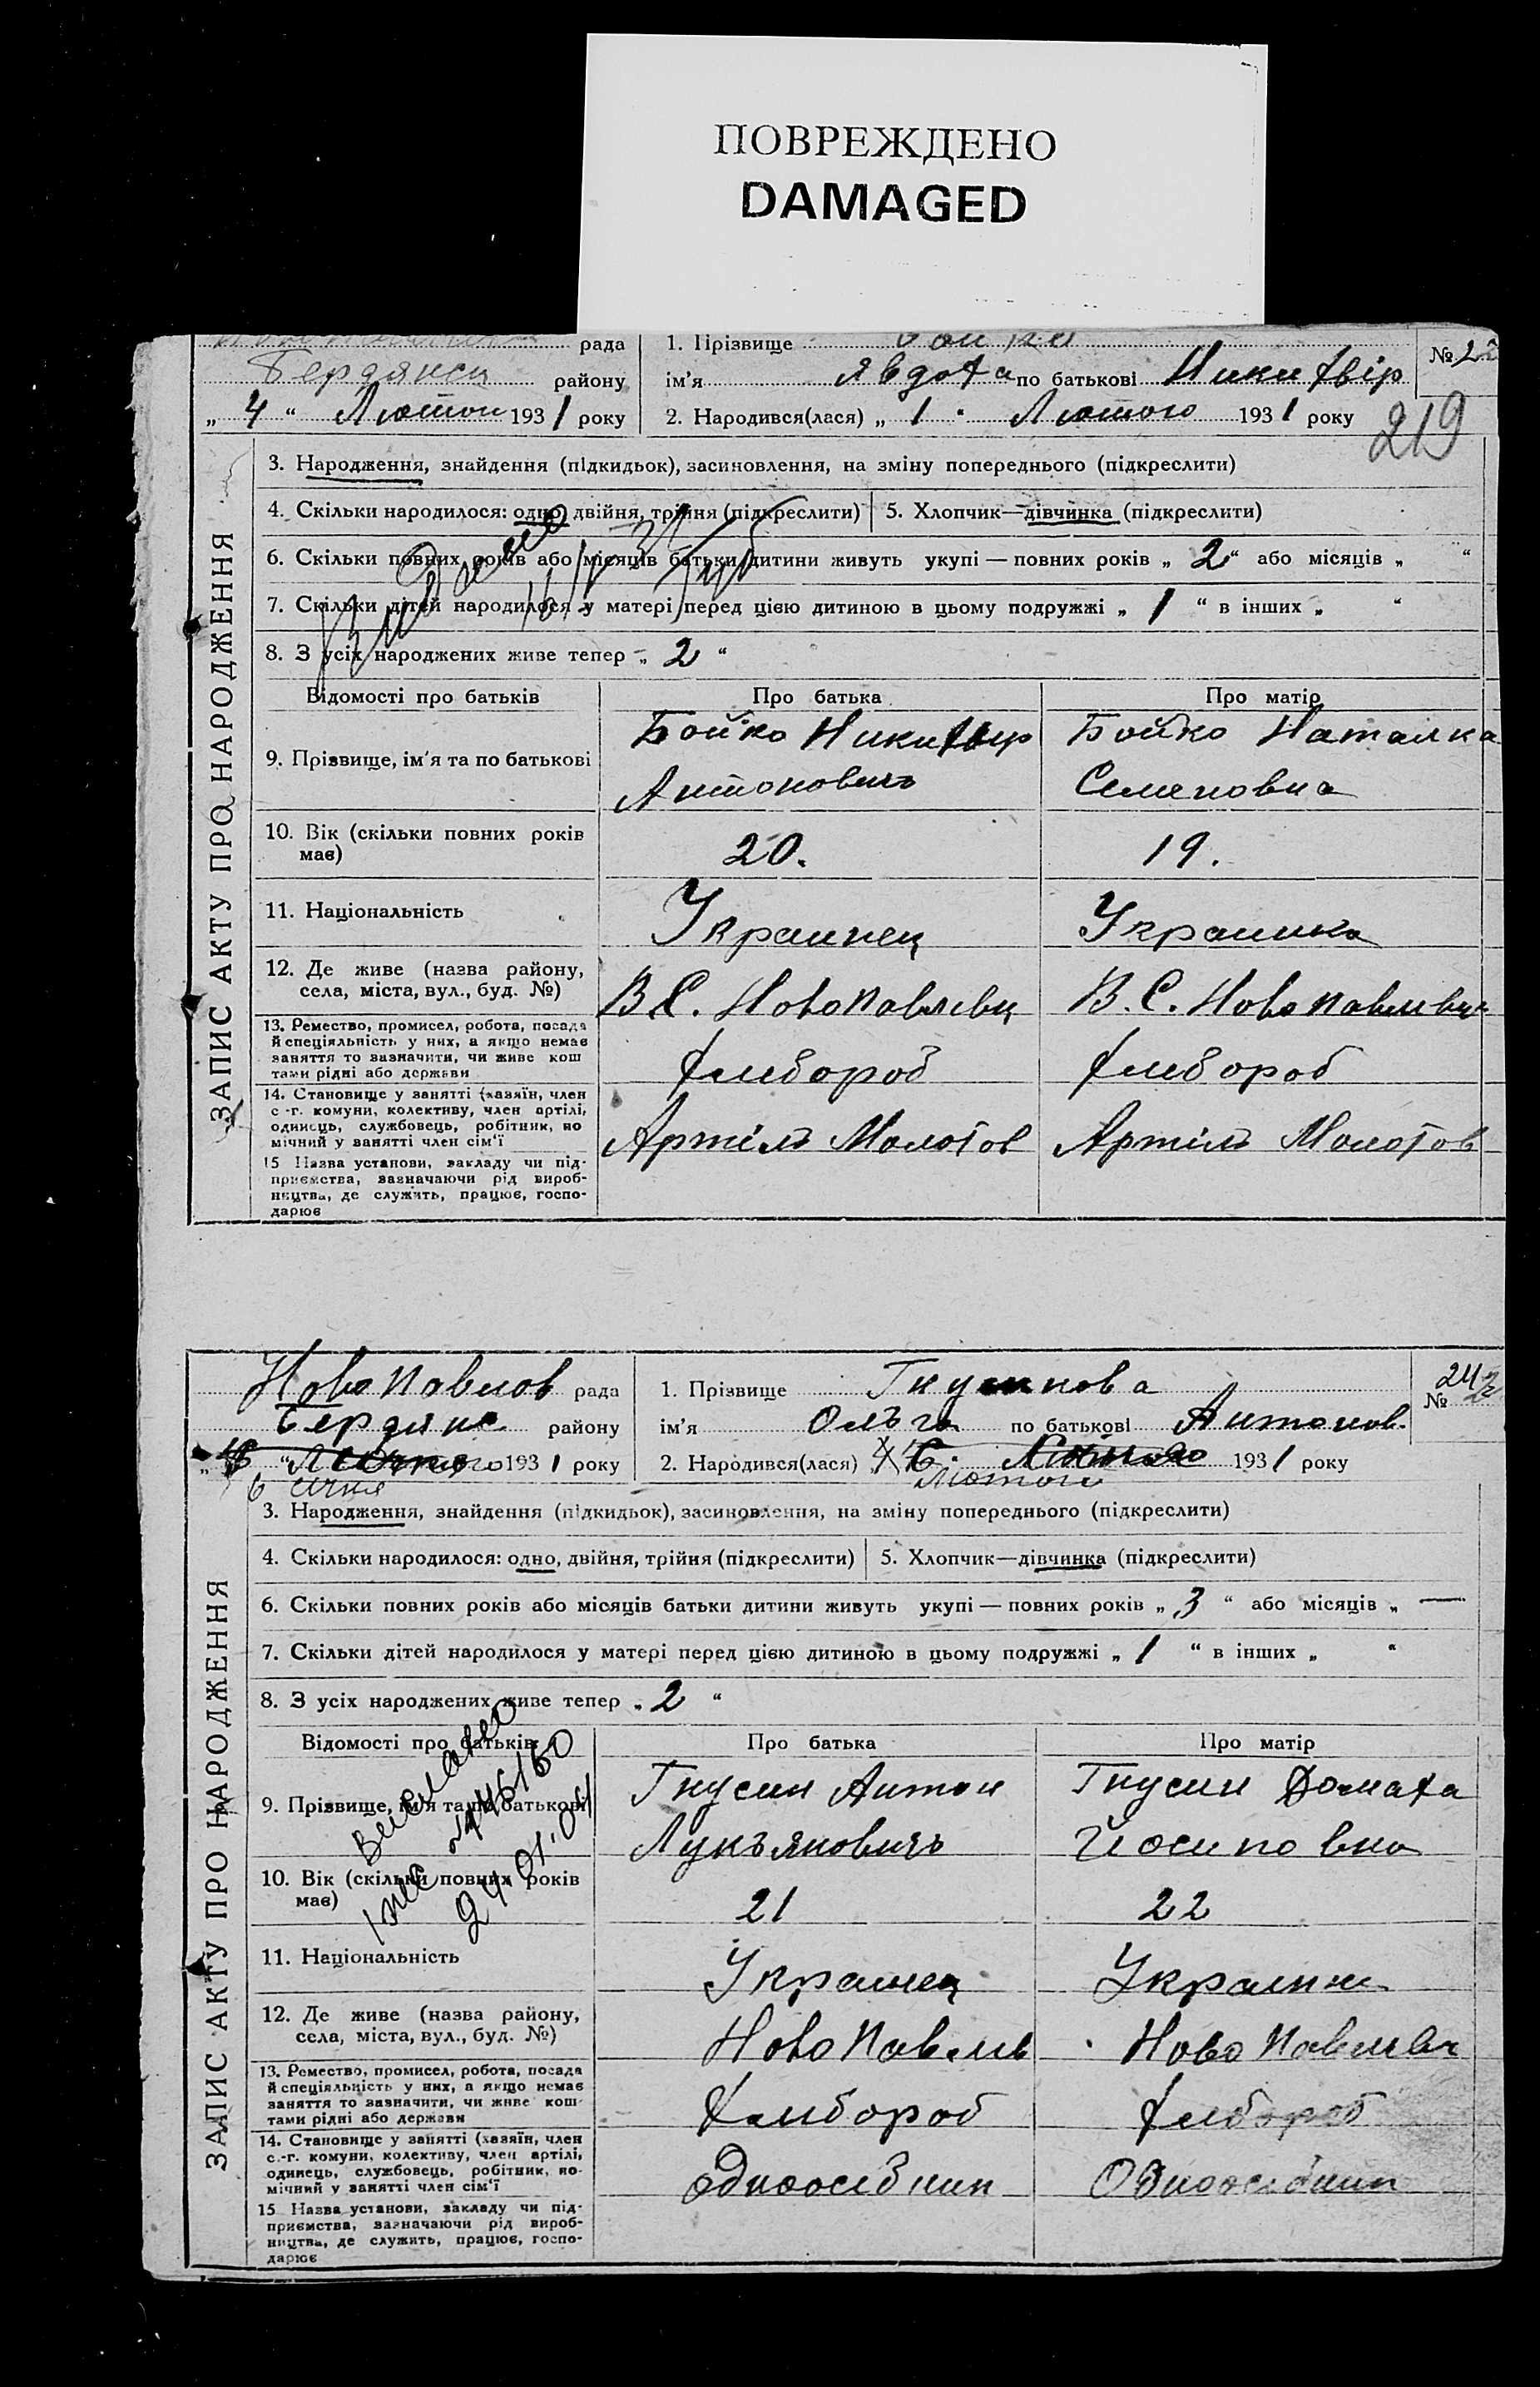 ПОВРЕЖДЕНО
DAMAGED
рада
Бердянск району
„ 4 “ Лютого 1931 року
1. Прізвище Бойко
ім'я Явдоха по батькові Никифвір
2. Народився(лася) „ 1 “ Лютого 1931 року
№ 22
219
ЗАПИС АКТУ ПРО НАРОДЖЕННЯ
3. Народження, знайдення (підкидьок), засиновлення, на зміну попереднього (підкреслити)
4. Скільки народилося: одно, двійня, трійня (підкреслити)
5. Хлопчик—дівчинка (підкреслити)
6. Скільки повних років або місяців батьки дитини живуть укупі — повних років „ 2 “ або місяців „ “
7. Скільки дітей народилося у матері перед цією дитиною в цьому подружжі „ 1 “ в інших „ “
8. З усіх народжених живе тепер „ 2 “
Відомості про батьків
Про батька
Про матір
9. Прізвище, ім'я та по батькові
Бойко Никифвир
Антоновичъ
Бойко Наталка
Семеновна
10. Вік (скільки повних років
має)
20.
19.
11. Національність
Украинец
Украинка
12. Де живе (назва району,
села, міста, вул., буд. №)
В С. Новопавлівц
В. С. Новопавлівц
13. Ремество, промисел, робота, посада
й спеціяльність у них, а якщо немає
заняття то зазначити, чи живе кош
тами рідні або держави
Хлибороб
Хлибороб
14. Становище у занятті (хазяїн, член
с.-г. комуни, колективу, член артілі,
одинець, службовець, робітник, по
мічний у занятті член сім'ї
Артіль Молотов
Артіль Молотов
15 Назва установи, закладу чи під-
приємства, зазначаючи рід вироб-
ництва, де служить, працює, госпо-
дарює
Видано
Ново Павлов рада
Бердянс району
1931 року
6 січня
1. Прізвище Гнусинова
ім'я Ольга по батькові Антонов.
2. Народився(лася) 1931 року
Лютого
24
№
ЗАПИС АКТУ ПРО НАРОДЖЕННЯ
3. Народження, знайдення (підкидьок), засиновлення, на зміну попереднього (підкреслити)
4. Скільки народилося: одно, двійня, трійня (підкреслити)
5. Хлопчик—дівчинка (підкреслити)
6. Скільки повних років або місяців батьки дитини живуть укупі — повних років „ 3 “ або місяців „ —
7. Скільки дітей народилося у матері перед цією дитиною в цьому подружжі „ 1 “ в інших „ “
8. З усіх народжених живе тепер „ 2 “
Відомості про батьків
Про батька
Про матір
9. Прізвище, ім'я та по батькові
Гнусин Антон
Лукъяновичъ
Гнусин Домаха
Йосиповна
10. Вік (скільки повних років
має)
21
22
11. Національність
Украинец
Украинка
12. Де живе (назва району,
села, міста, вул., буд. №)
Ново Павлів
Ново Павлівц
13. Ремество, промисел, робота, посада
й спеціяльність у них, а якщо немає
заняття то зазначити, чи живе кош-
тами рідні або держави
Хлибороб
Хлибороб
14. Становище у занятті (хазяїн, член
с.-г. комуни, колективу, член артілі,
одинець, службовець, робітник, по-
мічний у занятті член сім'ї
Одноосібник
Одноосібник
15 Назва установи, закладу чи під-
приємства, зазначаючи рід вироб-
ництва, де служить, працює, госпо-
дарює
Выслано